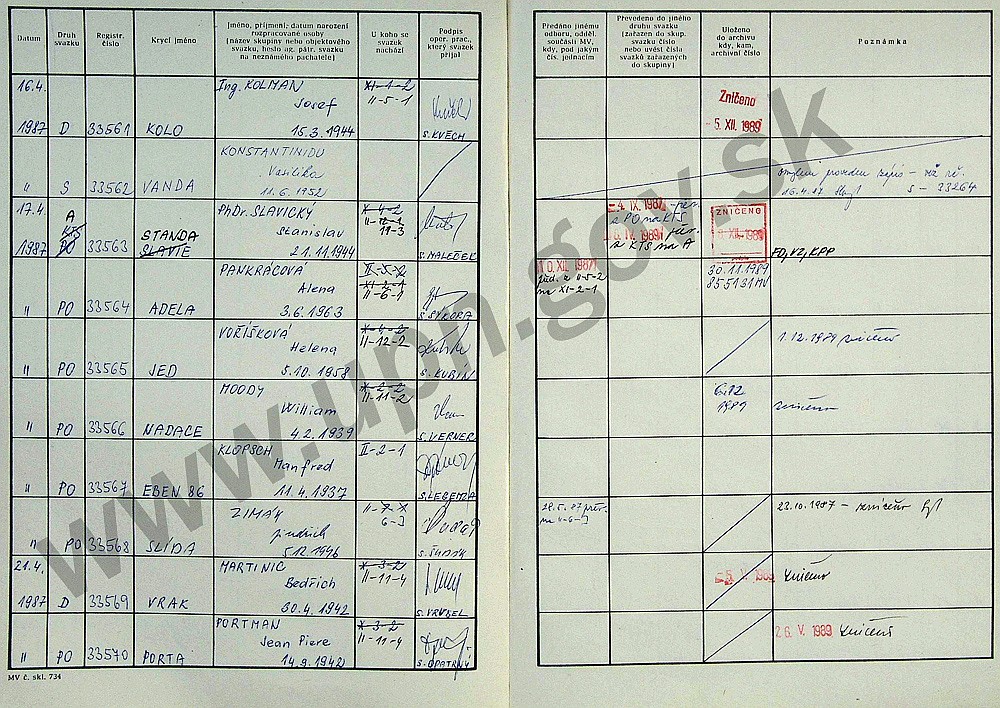 Datum
Druh svazku
Registr. číslo
Krycí jméno
Jméno, příjmení, datum narození
rozpracované osoby
(název skupiny nebo objektového
svazku, heslo ag. pátr. svazku
na neznámého pachatele)
U koho se
svazek
nachází
Podpis
oper. prac.,
který svazek
přijal
Předáno jinému
odboru, odděl.
součásti MV,
kdy, pod jakým
čís. jednacím
Převedeno do jiného
druhu svazku
(zařazen do skup.
svazku číslo
nebo uvést čísla
svazků zařazených
do skupiny)
Uloženo
do archivu
kdy, kam,
archivní číslo
Poznámka
16.4.
1987 D 33561 KOLO
Ing. KOLMAN
Josef
15.3.1944
XI-1-2
II-5-1
S. KVĚCH
Zničeno
5. XII. 1989
" S 33562 VANDA
KONSTANTINIDU
Vasilika
11.6.1952
omylem proveden zápis – viz
16.4.87 S – 33264
17.4.
1987
A
KTS
PO
33563
STANDA
SLAVIE
PhDr. SLAVICKÝ
Stanislav
21.11.1944
X-4-2
19-3
S. MALEČEK
4. IX. 1987
z PO na KTS
z KTS na A
ZNIČENO
FO, VZ, KPP
" PO 33564 ADELA
PANKRÁCOVÁ
Alena
3.6.1963
II-5-2
XI-2-1
II-6-1
S. SÝKORA
10. XII. 1987
z II-5-2
na XI-2-1
30.11.1989
855131 MV
" PO 33565 JED
VOŘÍŠKOVÁ
Helena
5.10.1958
X-4-2
II-12-2
S. KUBÍN
1.12.1989 zničeno
" PO 33566 NADACE
MOODY
William
4.2.1939
X-2-2
II-11-2
S. VERNER
1989
zničeno
" PO 33567 EBEN 86
KLOPSCH
Manfred
11.4.1937
II-2-1
S. LEGEMZA
" PO 33568 SLÍDA
ZIMÁK
Jindřich
5.12.1946
6-3
28.5.87
23.10.1987 – zničeno
21.4.
1987 D 33569 VRAK
MARTINIC
Bedřich
30.4.1942
X-3-2
II-11-4
S. VRUBEL
5. V. 1989 Zničeno
" PO 33570 PORTA
PORTMAN
Jean Piere
14.9.1942
X-3-2
II-11-4
S. OPATRNÝ
26. V. 1989 Zničeno
MV č. skl. 734
www.upn.gov.sk